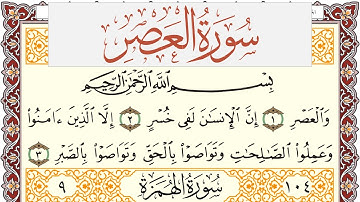 سُورَةُ العَصْرِ
بِسْمِ اللَّهِ الرَّحْمَٰنِ الرَّحِيمِ
وَالْعَصْرِ ١ إِنَّ الْإِنسَانَ لَفِي خُسْرٍ ٢ إِلَّا الَّذِينَ ءَامَنُوا
وَعَمِلُوا الصَّالِحَاتِ وَتَوَاصَوْا بِالْحَقِّ وَتَوَاصَوْا بِالصَّبْرِ ٣
٩ سُورَةُ الْهُمَزَةِ ١٠٤